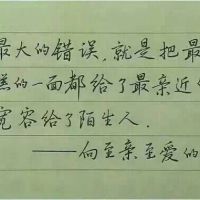 最大的错误,就是把最
糕的一面都给了最亲近
宽容给了陌生人.
——向至亲至爱的